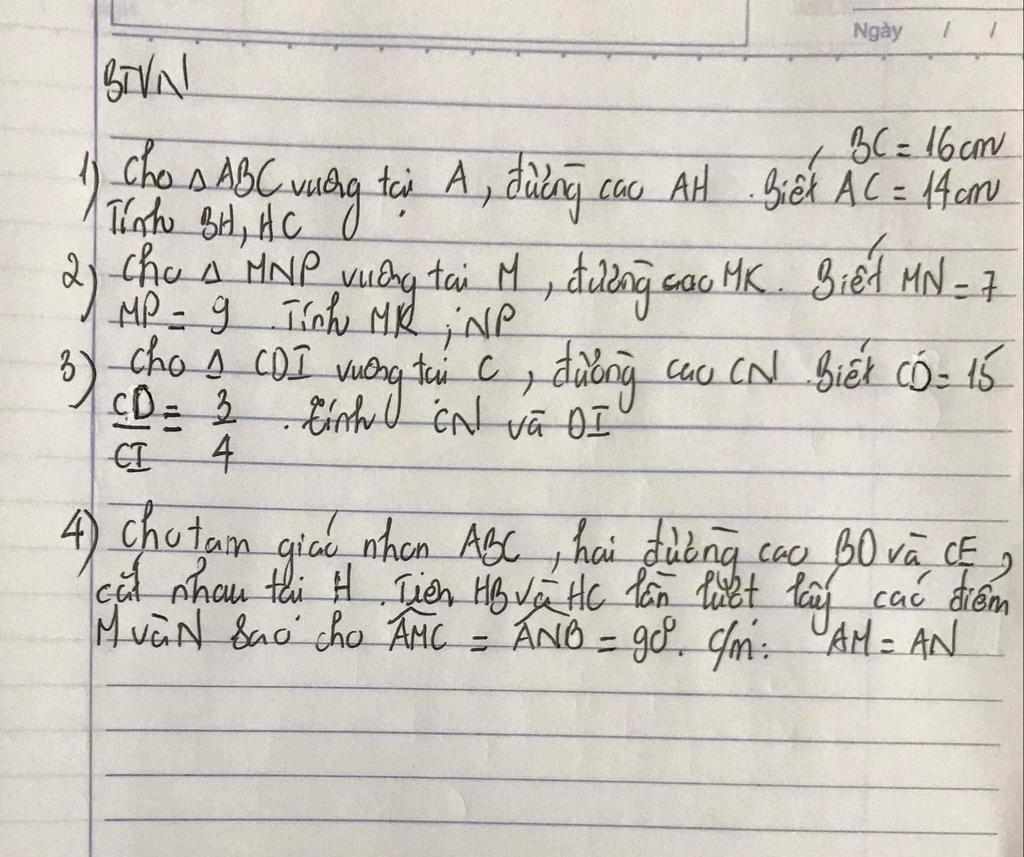 Ngày / /
BTVN
BC = 16cm
1) Cho Δ ABC vuông tại A, đường cao AH. Biết AC = 14cm
Tính BH, HC
2) Cho Δ MNP vuông tại M, đường cao MK. Biết MN = 7
MP = 9. Tính MK ; NP
3) Cho Δ CDI vuông tại C, đường cao CN. Biết CD = 15
CD/CI = 3/4. tính CN và DI
4) Cho tam giác nhọn ABC, hai đường cao BD và CE,
cắt nhau tại H. Trên HB và HC lần lượt lấy các điểm
M và N sao cho AMC = ANB = 90°. C/m: AM = AN